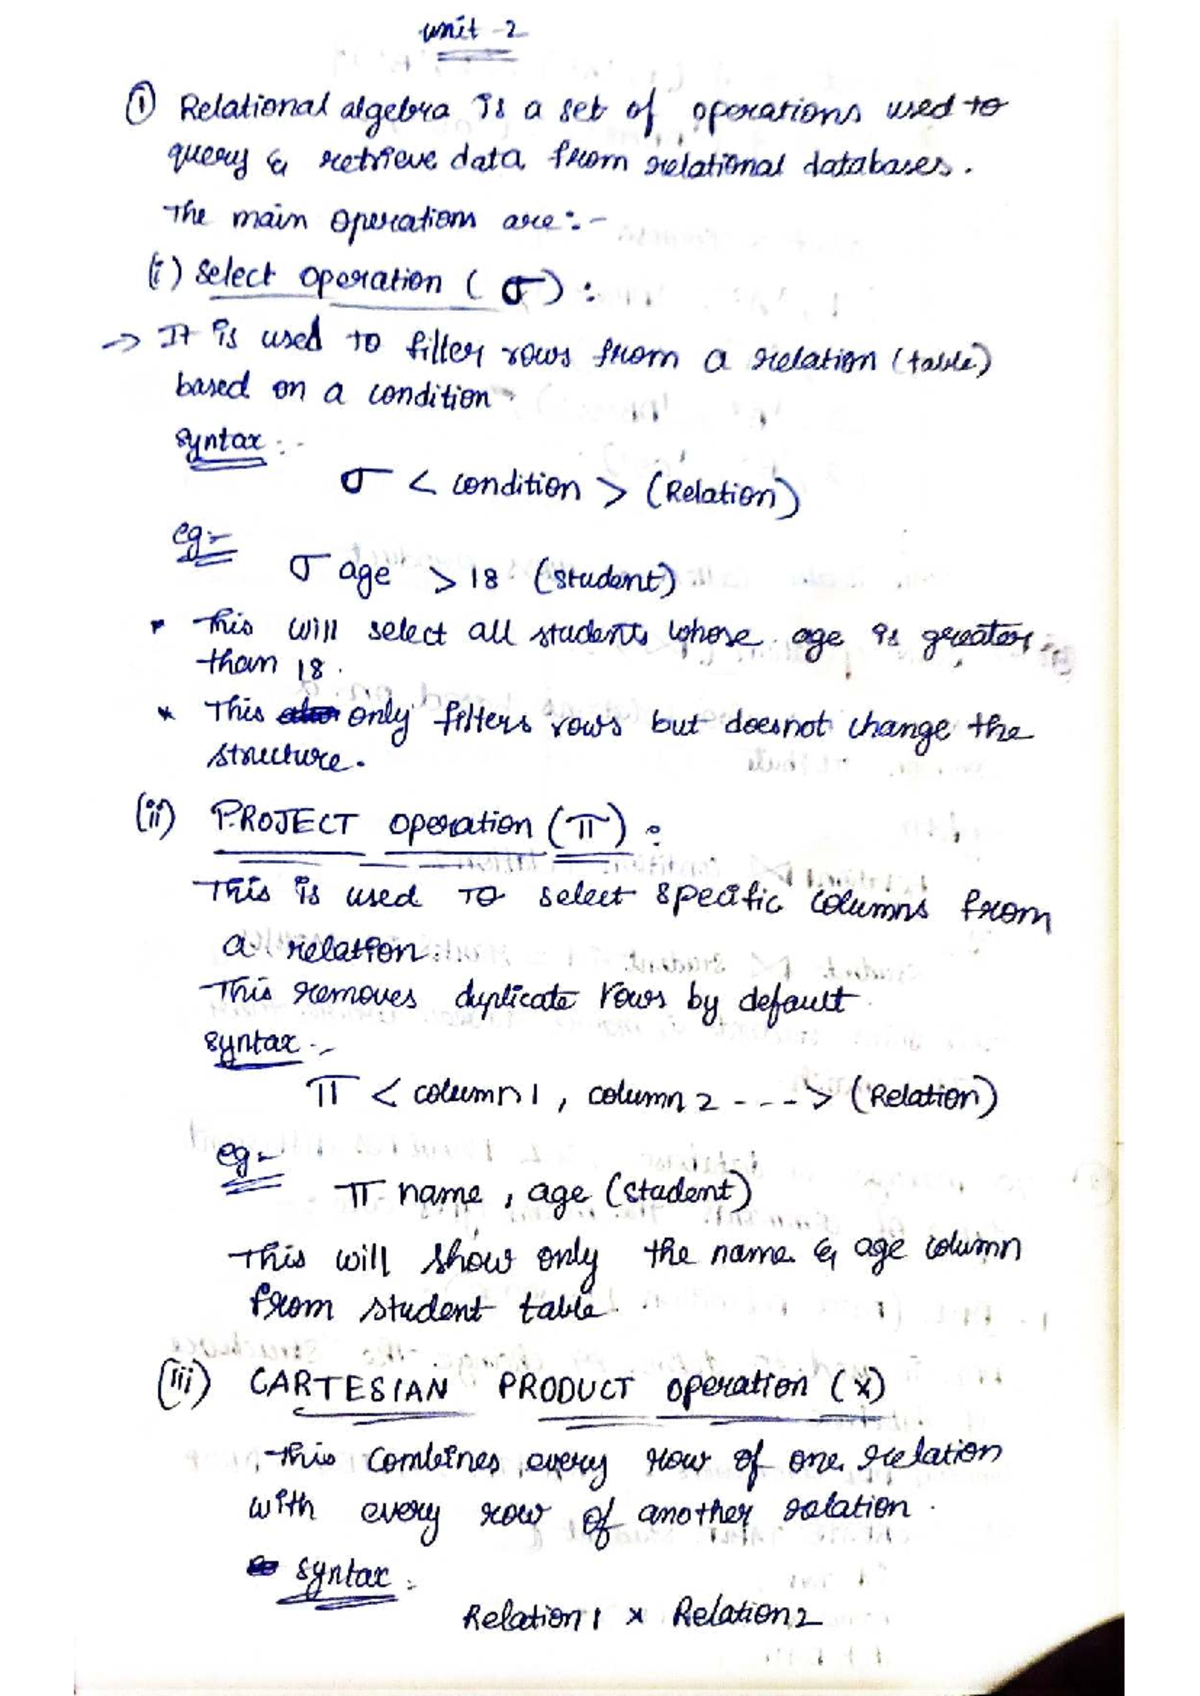 unit-2
① Relational algebra is a set of operations used to
query & retrieve data from relational databases.
The main operations are:-
(i) Select operation (σ):
→ It is used to filter rows from a relation (table)
based on a condition.
Syntax:-
σ < condition > (Relation)
eg:-
σ age > 18 (student)
* This will select all students whose age is greater
than 18.
* This only filters rows but doesnot change the
structure.
(ii) PROJECT operation (π):
This is used to select specific columns from
a relation.
This removes duplicate rows by default.
syntax:-
π < column 1, column 2 ---> (Relation)
eg:-
π name, age (student)
This will show only the name & age column
from student table.
(iii) CARTESIAN PRODUCT operation (x)
This combines every row of one relation
with every row of another relation.
syntax:
Relation1 x Relation2